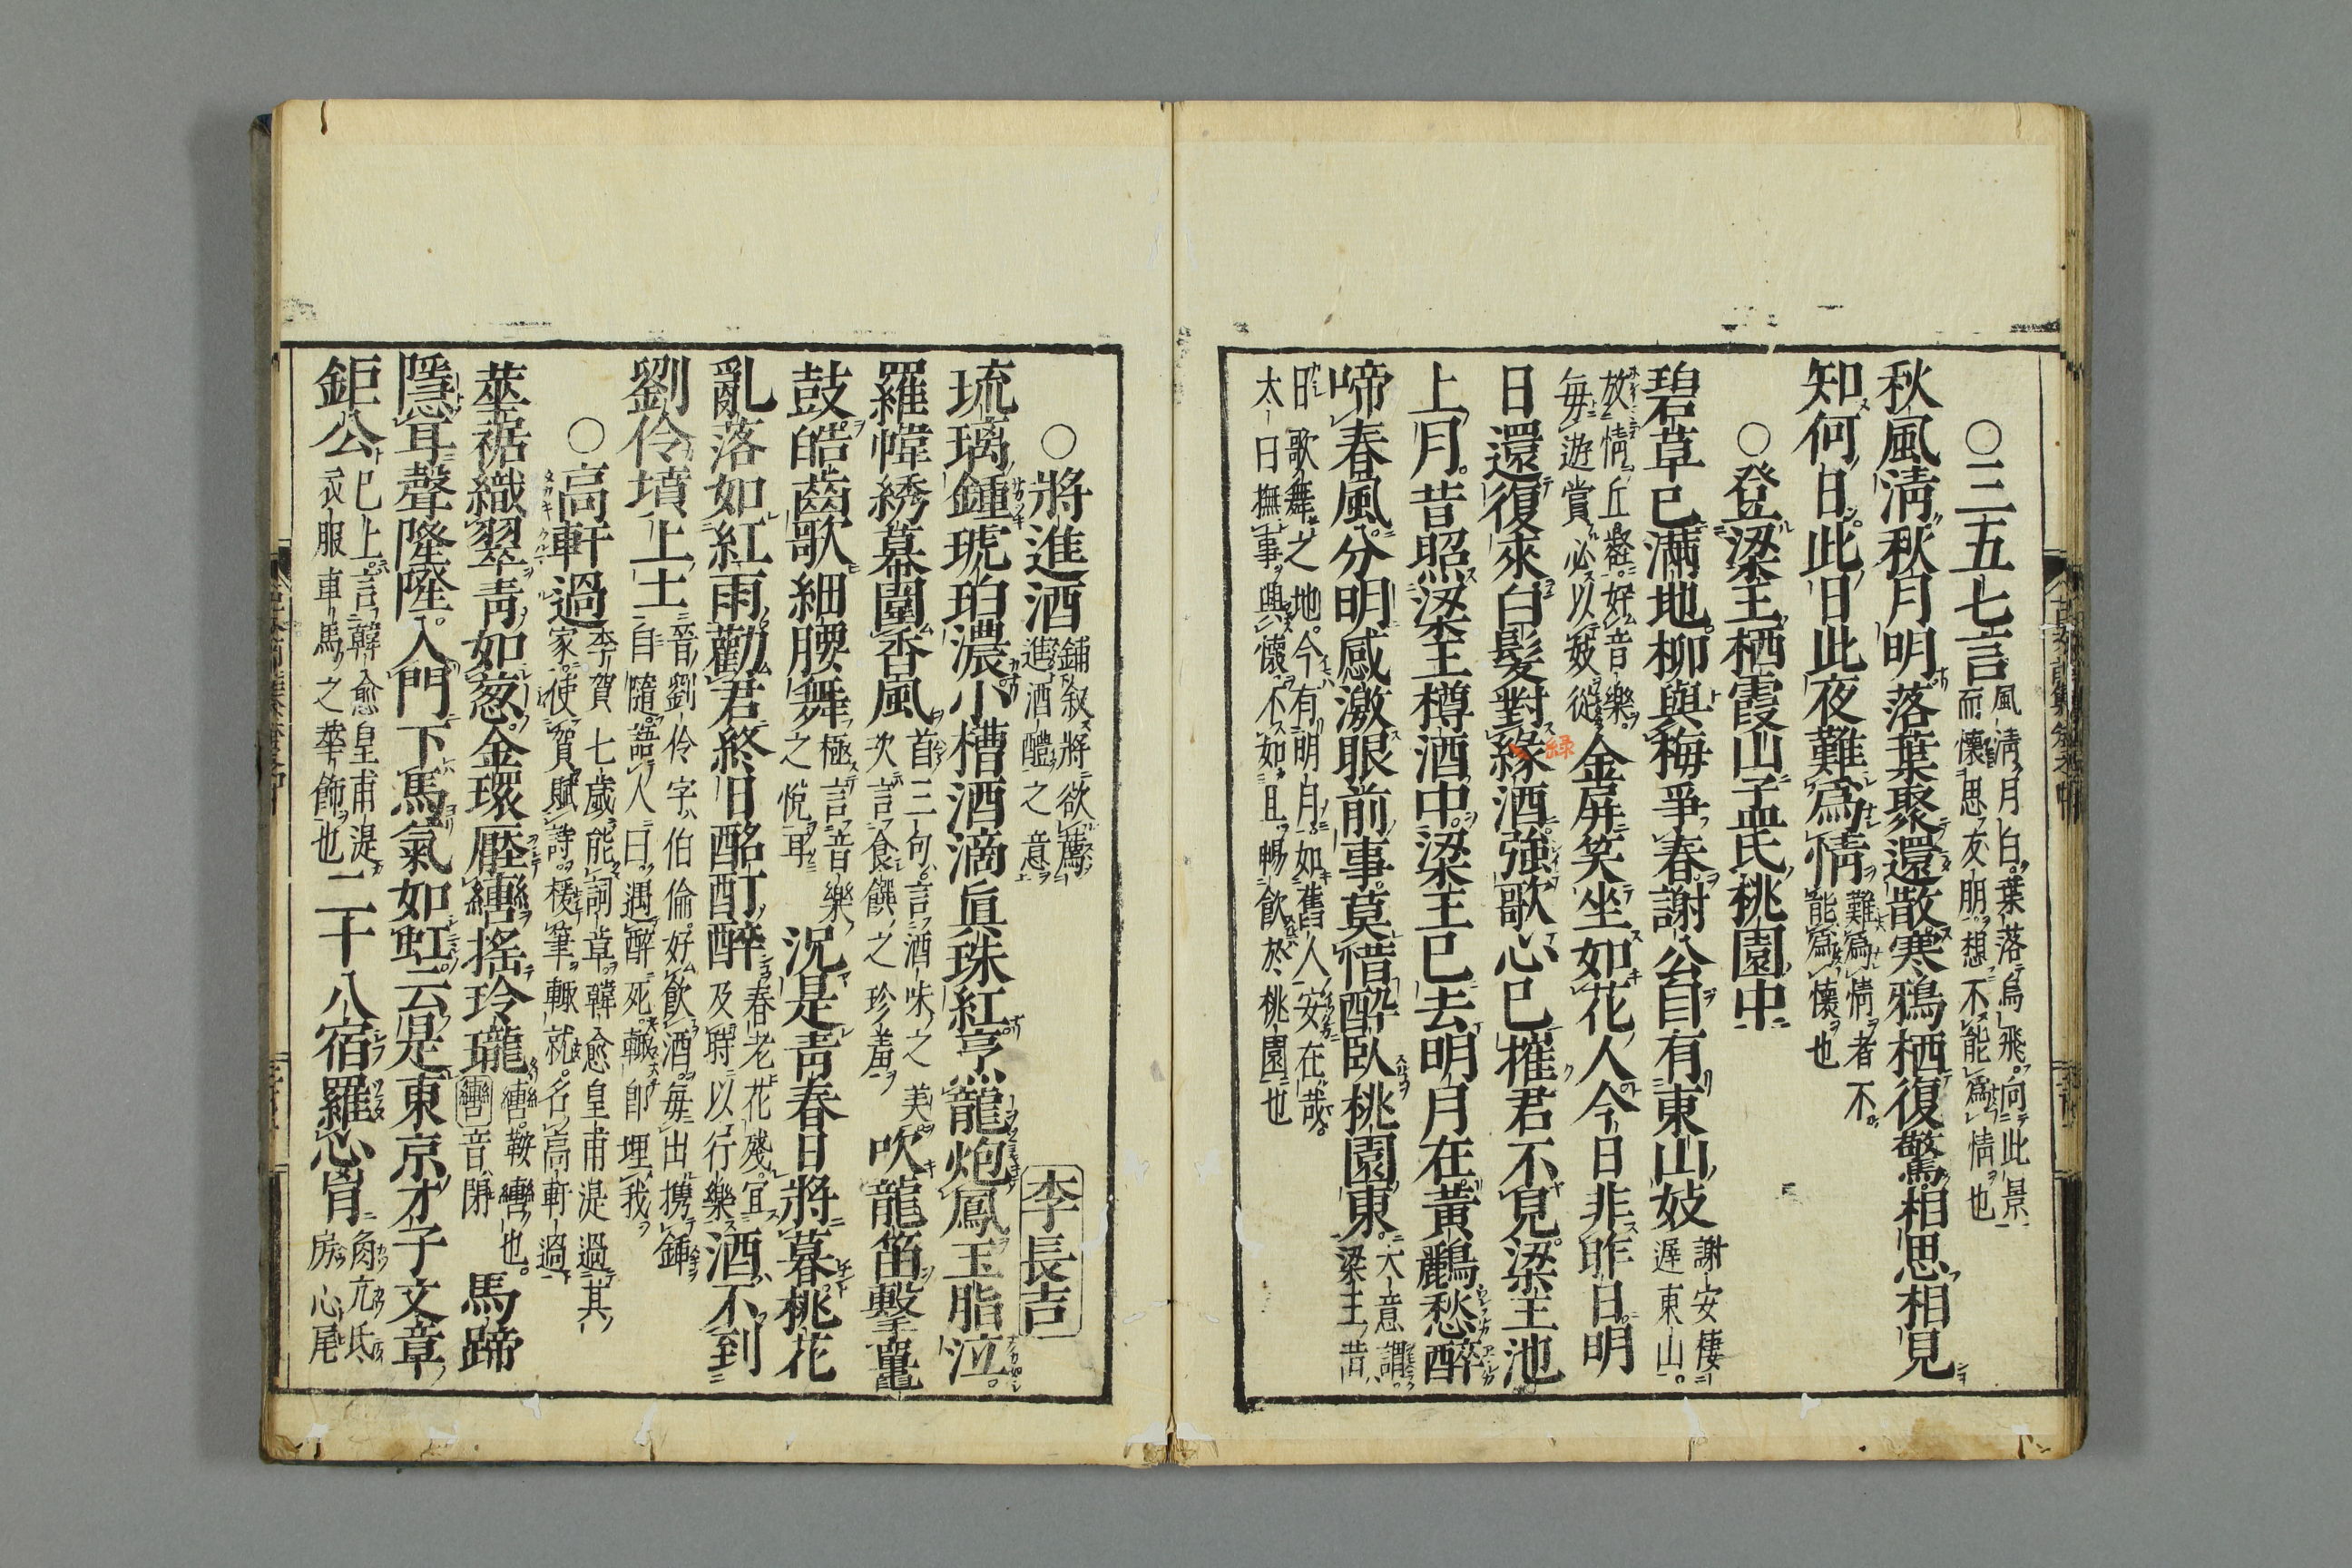 ○三五七言 風清月白葉落烏飛向此景
而懷思友朋想不能爲情也
秋風清秋月明落葉聚還散寒鴉栖復驚相思相見
知何日此日此夜難爲情 難爲情者不
能爲懷也
○登梁王栖霞山孟氏桃園中
碧草已滿地柳與梅爭春謝公自有東山妓 謝安棲
遲東山
放情丘壑好音樂
每遊賞必以妓從 金屏笑坐如花人今日非昨日明
日還復來白髮對緣酒強歌心已摧君不見梁王池
緑
上月昔照梁王樽酒中梁王已去明月在黃鸝愁醉
啼春風分明感激眼前事莫惜醉臥桃園東 大意謂
梁王昔
日歌舞之地今有明月如舊人安在哉
太白撫事興懷不如且暢飲於桃園也
○將進酒 鋪叙將欲薦
進酒醴之意 李長吉
琉璃鍾琥珀濃小槽酒滴眞珠紅亨龍炮鳳玉脂泣
羅幃綉幕圍香風 首三句言酒味之美
次言食饌之珍羞 吹龍笛擊鼉
鼓皓齒歌細腰舞 極言音樂
之悅耳 況是青春日將暮桃花
亂落如紅雨勸君終日酩酊醉 春老花殘宜
及時以行樂 酒不到
劉伶墳上土 音劉伶字伯倫好飲酒每出携鍾
自隨語人曰遇醉死輙即埋我
○高軒過 李賀七歲能詞章韓愈皇甫湜過其
家使賀賦詩援筆輙就名高軒過
華裾織翠青如葱金環壓轡搖玲瓏 轡鞍轡也
轡音閉 馬蹄
隱耳聲隆隆入門下馬氣如虹云是東京才子文章
鉅公 已上言韓愈皇甫湜
衣服車馬之華飾也 二十八宿羅心胷 角亢氐
房心尾